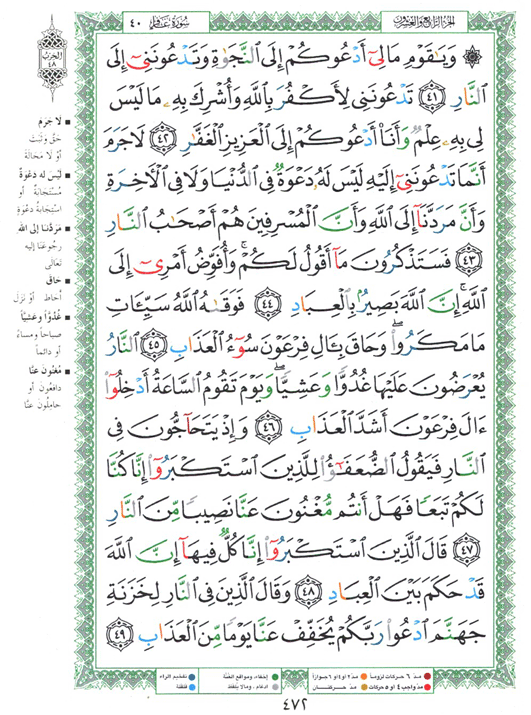 الجزء الرابع والعشرون
سورة غافر ٤٠
۞ وَيَٰقَوْمِ مَا لِىٓ أَدْعُوكُمْ إِلَى ٱلنَّجَوٰةِ وَتَدْعُونَنِىٓ إِلَى
ٱلنَّارِ ٤١ تَدْعُونَنِى لِأَكْفُرَ بِٱللَّهِ وَأُشْرِكَ بِهِۦ مَا لَيْسَ
لِى بِهِۦ عِلْمٌ وَأَنَا۠ أَدْعُوكُمْ إِلَى ٱلْعَزِيزِ ٱلْغَفَّٰرِ ٤٢ لَا جَرَمَ
أَنَّمَا تَدْعُونَنِىٓ إِلَيْهِ لَيْسَ لَهُۥ دَعْوَةٌ فِى ٱلدُّنْيَا وَلَا فِى ٱلْءَاخِرَةِ
وَأَنَّ مَرَدَّنَآ إِلَى ٱللَّهِ وَأَنَّ ٱلْمُسْرِفِينَ هُمْ أَصْحَٰبُ ٱلنَّارِ
٤٣ فَسَتَذْكُرُونَ مَآ أَقُولُ لَكُمْ ۚ وَأُفَوِّضُ أَمْرِىٓ إِلَى
ٱللَّهِ ۚ إِنَّ ٱللَّهَ بَصِيرٌۢ بِٱلْعِبَادِ ٤٤ فَوَقَىٰهُ ٱللَّهُ سَيِّـَٔاتِ
مَا مَكَرُوا۟ ۖ وَحَاقَ بِـَٔالِ فِرْعَوْنَ سُوٓءُ ٱلْعَذَابِ ٤٥ ٱلنَّارُ
يُعْرَضُونَ عَلَيْهَا غُدُوًّا وَعَشِيًّا ۖ وَيَوْمَ تَقُومُ ٱلسَّاعَةُ أَدْخِلُوٓا۟
ءَالَ فِرْعَوْنَ أَشَدَّ ٱلْعَذَابِ ٤٦ وَإِذْ يَتَحَآجُّونَ فِى
ٱلنَّارِ فَيَقُولُ ٱلضُّعَفَٰٓؤُا۟ لِلَّذِينَ ٱسْتَكْبَرُوٓا۟ إِنَّا كُنَّا
لَكُمْ تَبَعًا فَهَلْ أَنتُم مُّغْنُونَ عَنَّا نَصِيبًا مِّنَ ٱلنَّارِ
٤٧ قَالَ ٱلَّذِينَ ٱسْتَكْبَرُوٓا۟ إِنَّا كُلٌّ فِيهَآ إِنَّ ٱللَّهَ
قَدْ حَكَمَ بَيْنَ ٱلْعِبَادِ ٤٨ وَقَالَ ٱلَّذِينَ فِى ٱلنَّارِ لِخَزَنَةِ
جَهَنَّمَ ٱدْعُوا۟ رَبَّكُمْ يُخَفِّفْ عَنَّا يَوْمًا مِّنَ ٱلْعَذَابِ ٤٩
الحزب
٤٨
■ لا جَرَمَ
حَقَّ وثَبَتَ
أوْ لا مَحَالَةَ
■ لَيْسَ له دعْوةٌ
مُسْتَجَابَةٌ أو
اسْتِجَابةُ دعْوَةٍ
■ مَرَدَّنا إلى الله
رجُوعَنا إليه
تَعَالى
■ حَاقَ
أحَاطَ أوْ نَزَلَ
■ غُدُوّاً وعَشيّاً
صباحاً ومساءً
أو دائماً
■ مُغْنُونَ عنّا
دافِعُون أو
حامِلُونَ عنّا
مدّ ٦ حركات لزوماً
مدّ ٢ أو ٤ أو ٦ جوازاً
إخفاء، ومواقع الغُنَّة
تفخيم الراء
مدّ واجب ٤ أو ٥ حركات
مدّ حركتان
ادغام، وما لا يُلفظ
قلقلة
٤٧٢